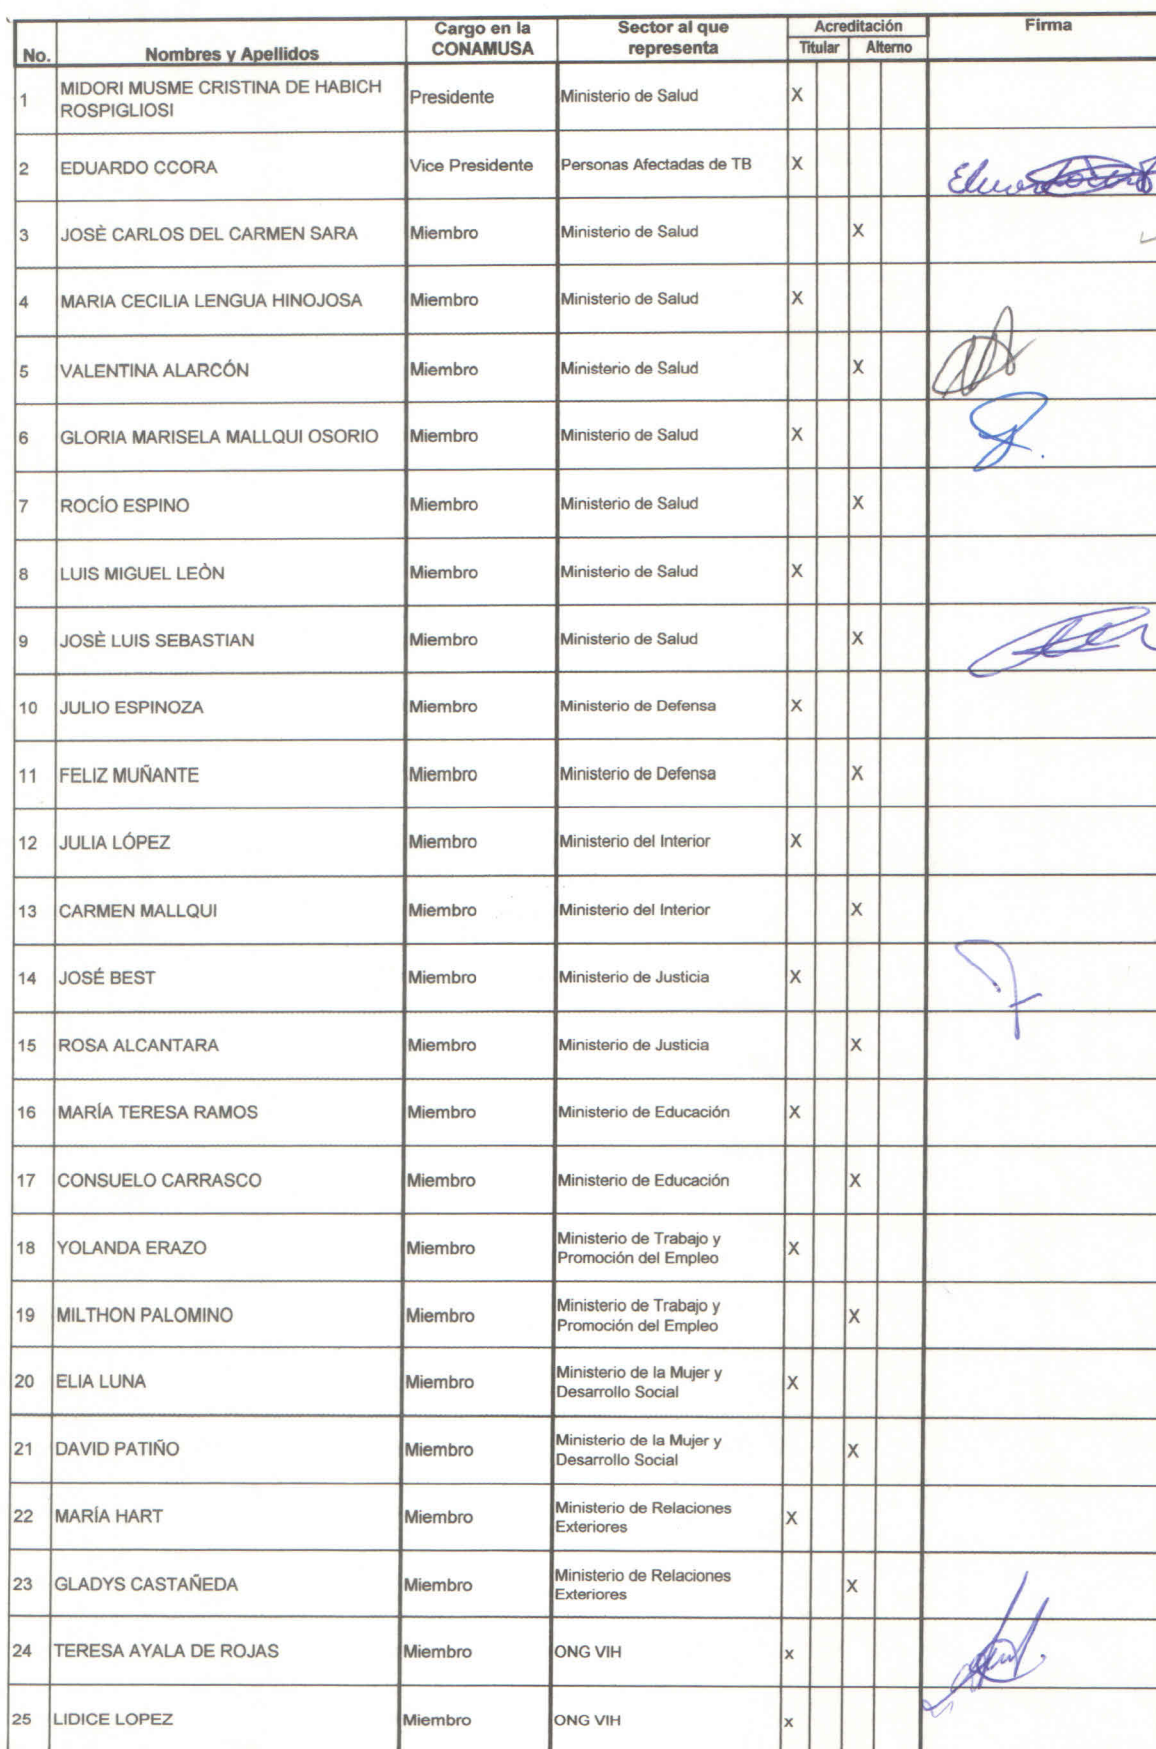 No. Nombres y Apellidos Cargo en la CONAMUSA Sector al que representa Acreditación Titular Alterno Firma
1 MIDORI MUSME CRISTINA DE HABICH ROSPIGLIOSI Presidente Ministerio de Salud X
2 EDUARDO CCORA Vice Presidente Personas Afectadas de TB X
3 JOSÈ CARLOS DEL CARMEN SARA Miembro Ministerio de Salud X
4 MARIA CECILIA LENGUA HINOJOSA Miembro Ministerio de Salud X
5 VALENTINA ALARCÓN Miembro Ministerio de Salud X
6 GLORIA MARISELA MALLQUI OSORIO Miembro Ministerio de Salud X
7 ROCÍO ESPINO Miembro Ministerio de Salud X
8 LUIS MIGUEL LEÒN Miembro Ministerio de Salud X
9 JOSÈ LUIS SEBASTIAN Miembro Ministerio de Salud X
10 JULIO ESPINOZA Miembro Ministerio de Defensa X
11 FELIZ MUÑANTE Miembro Ministerio de Defensa X
12 JULIA LÓPEZ Miembro Ministerio del Interior X
13 CARMEN MALLQUI Miembro Ministerio del Interior X
14 JOSÉ BEST Miembro Ministerio de Justicia X
15 ROSA ALCANTARA Miembro Ministerio de Justicia X
16 MARÍA TERESA RAMOS Miembro Ministerio de Educación X
17 CONSUELO CARRASCO Miembro Ministerio de Educación X
18 YOLANDA ERAZO Miembro Ministerio de Trabajo y Promoción del Empleo X
19 MILTHON PALOMINO Miembro Ministerio de Trabajo y Promoción del Empleo X
20 ELIA LUNA Miembro Ministerio de la Mujer y Desarrollo Social X
21 DAVID PATIÑO Miembro Ministerio de la Mujer y Desarrollo Social X
22 MARÍA HART Miembro Ministerio de Relaciones Exteriores X
23 GLADYS CASTAÑEDA Miembro Ministerio de Relaciones Exteriores X
24 TERESA AYALA DE ROJAS Miembro ONG VIH x
25 LIDICE LOPEZ Miembro ONG VIH x